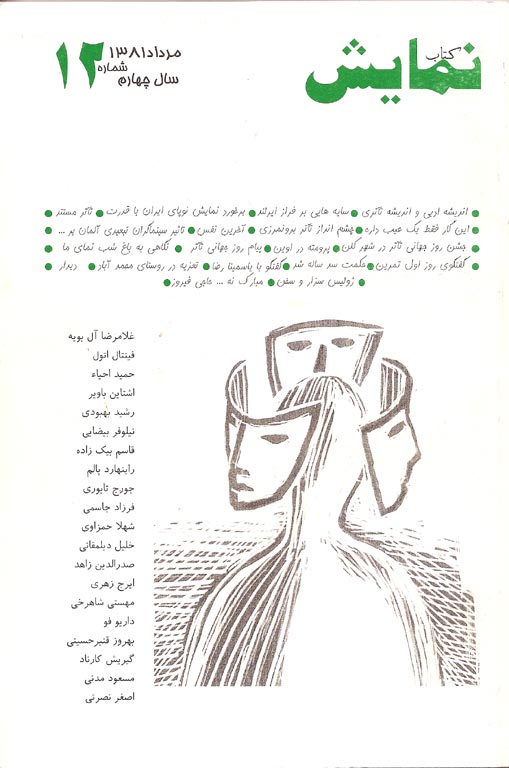 کتاب
نمایش
مرداد ۱۳۸۱
شماره ۱۲
سال چهارم
● اندیشه ادبی و اندیشه تئاتری ● سایه هایی بر فراز ایرلند ● برخورد نمایش نوپای ایران با قدرت ● تئاتر مستند ●
● این کار فقط یک عیب داره ● چشم انداز تئاتر برونمرزی ● آخرین نفس ● تاثیر سینماگران تبعیدی آلمان بر ... ●
● جشن روز جهانی تئاتر در شهر کلن ● پرومته در اوین ● پیام روز جهانی تئاتر ● نگاهی به باغ شب نمای ما ●
● گفتگوی روز اول تمرین ● حکمت سد ساله شد ● گفتگو با یاسمینا رضا ● تعزیه در روستای محمد آباد ● دیدار ●
● ژولیس سزار و سخن ● مبارک نه ... حاجی فیروز ●
غلامرضا آل بویه
فینتال اتول
حمید احیاء
اشتاین باویر
رشید بهبودی
نیلوفر بیضایی
قاسم بیک زاده
راینهارد پالم
جورج تابوری
فرزاد جاسمی
شهلا حمزاوی
خلیل دیلمقانی
صدرالدین زاهد
ایرج زهری
مهستی شاهرخی
داریو فو
بهروز قنبرحسینی
گیریش کارناد
مسعود مدنی
اصغر نصرتی